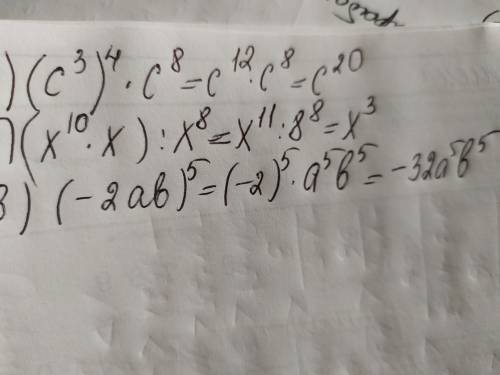 )(c³)⁴·c⁸=c¹²·c⁸=c²⁰
)(x¹⁰·x):x⁸=x¹¹:8⁸=x³
3) (-2ab)⁵=(-2)⁵·a⁵b⁵=-32a⁵b⁵